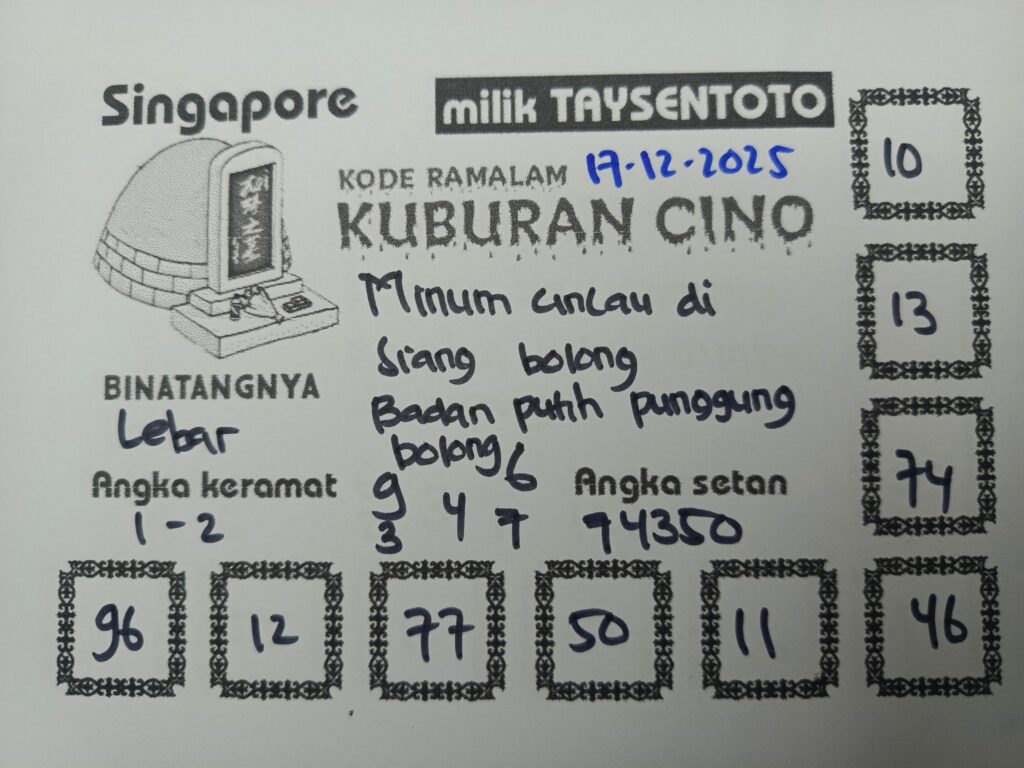 Singapore
milik TAYSENTOTO
KODE RAMALAM 17-12-2025
KUBURAN CINO
Minum cincau di
siang bolong
Badan putih punggung
bolong
BINATANGNYA
Lebar
Angka keramat
1-2
9 6
3 4 7
Angka setan
74350
10
13
74
96 12 77 50 11 46